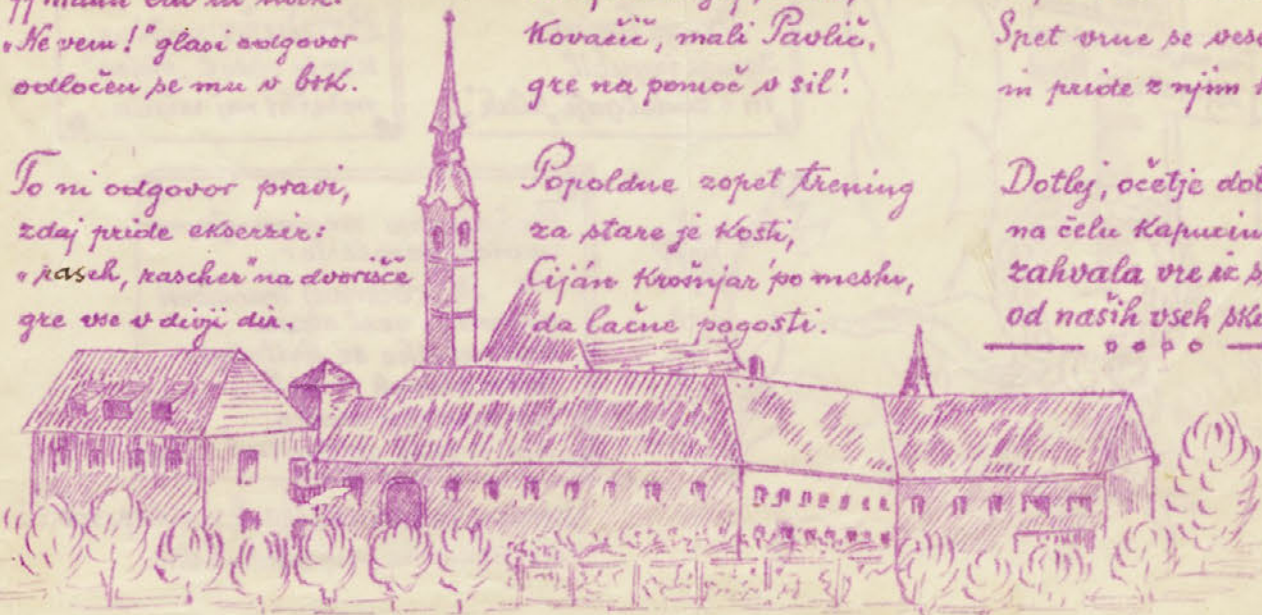 "Ne vem!" glasi odgovor
odločen se mu v brk.
To ni odgovor pravi,
zdaj pride ekserzir:
"rasch, rascher" na dvorišče
gre vse v divji dir.
Kovačič, mali Pavlič,
gre na pomoč v sil!
Popoldne zopet trening
za stare je kosti,
Ciján krošnjar po mestu,
da lačne pogosti.
Spet vrne se
in pride z njim
Dotlej, očetje
na čelu
zahvala vre iz
od naših vseh